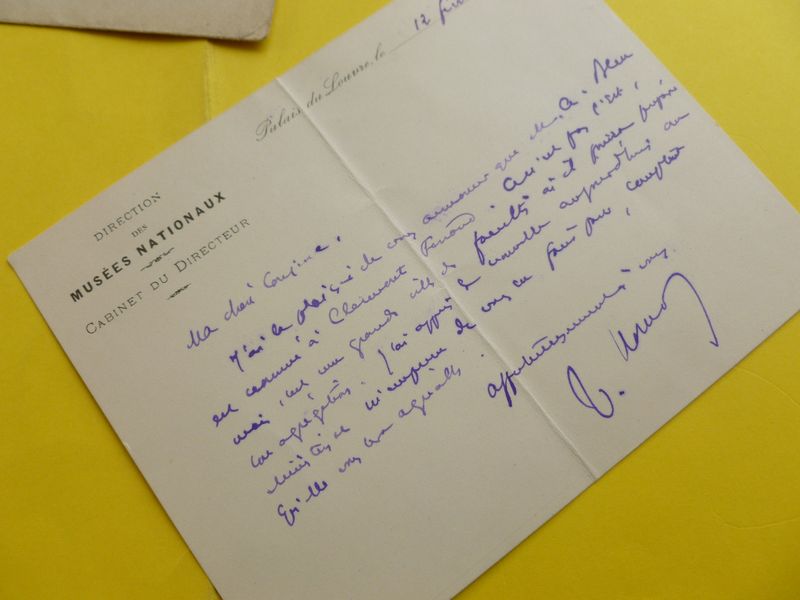 DIRECTION
DES
MUSÉES NATIONAUX
CABINET DU DIRECTEUR
Palais du Louvre, le 12
Ma chère Cousine,
J'ai le plaisir de vous annoncer que
est nommé à Clermont Ferrand. Ce n'est pas
mais c'est une grande ville de facultés où il pourra préparer
son agrégation. J'ai appris la nouvelle aujourd'hui au
ministère et m'empresse de vous en faire part,
qu'elle vous sera agréable.
affectueusement à vous.